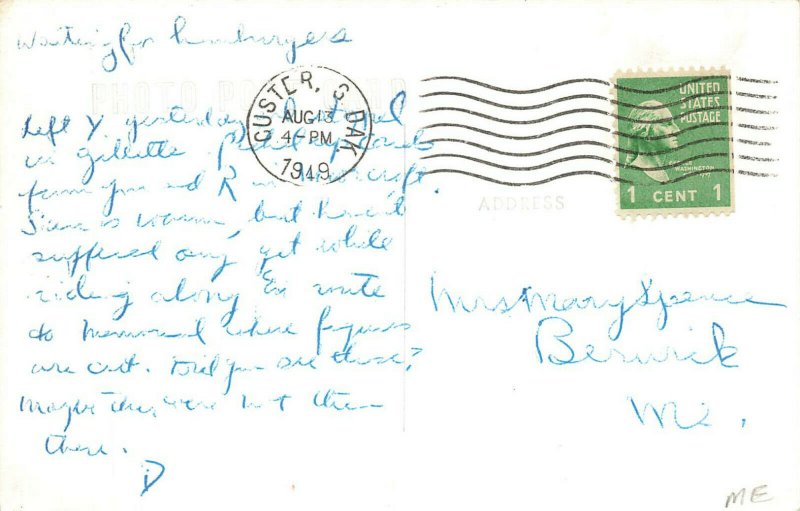 Waiting for hamburgers
PHOTO
CUSTER, S. DAK.
AUG 13
4 - PM
1949
UNITED
STATES
POSTAGE
WASHINGTON
1 CENT 1
ADDRESS
Left Y. yesterday
in Gillette
from you and R in
is warm, but haven't
suffered any yet while
riding along En route
to Memorial where figures
are cut. Did you see these?
Maybe they were not then
there.
D
Mrs Mary Spence
Berwick
Me.
ME